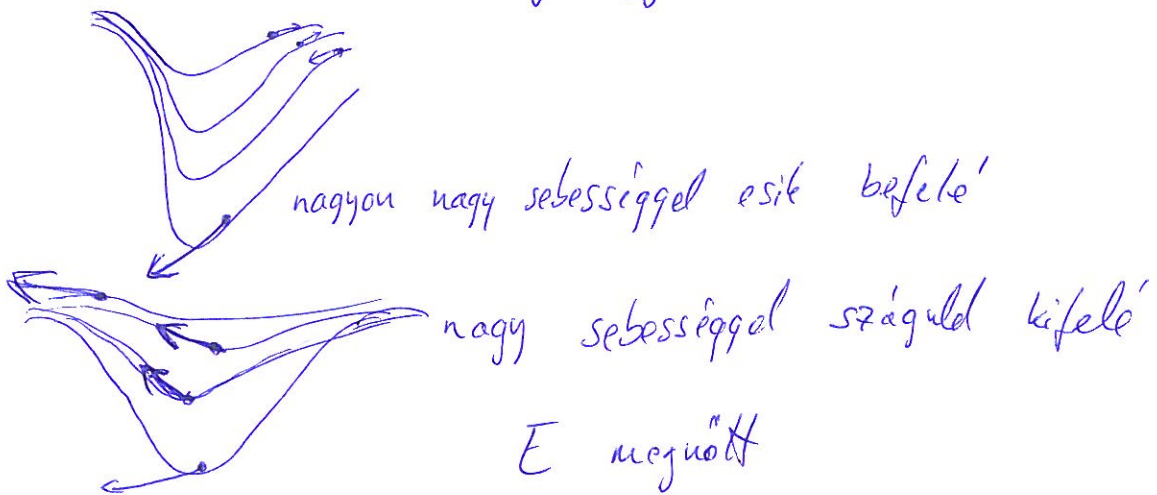 nagyon nagy sebességgel esik befelé
nagy sebességgel száguld kifelé
E megnőtt